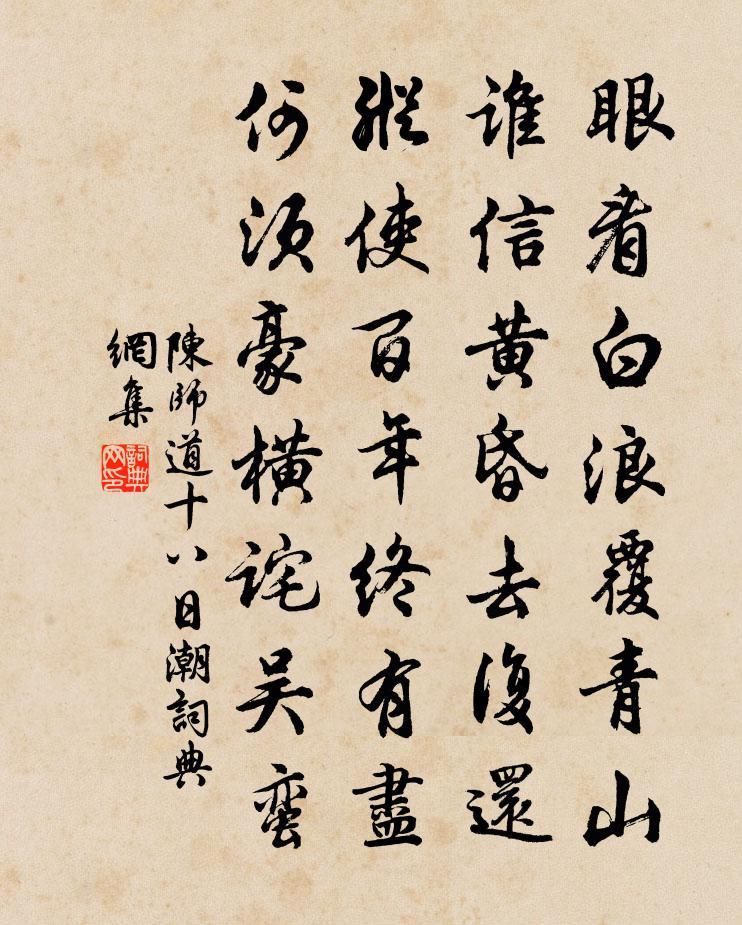 眼看白浪覆青山
誰信黄昏去復還
縱使百年終有盡
何須豪橫詫吴蛮
陳師道十八日潮詞典
網集
詞典
网印